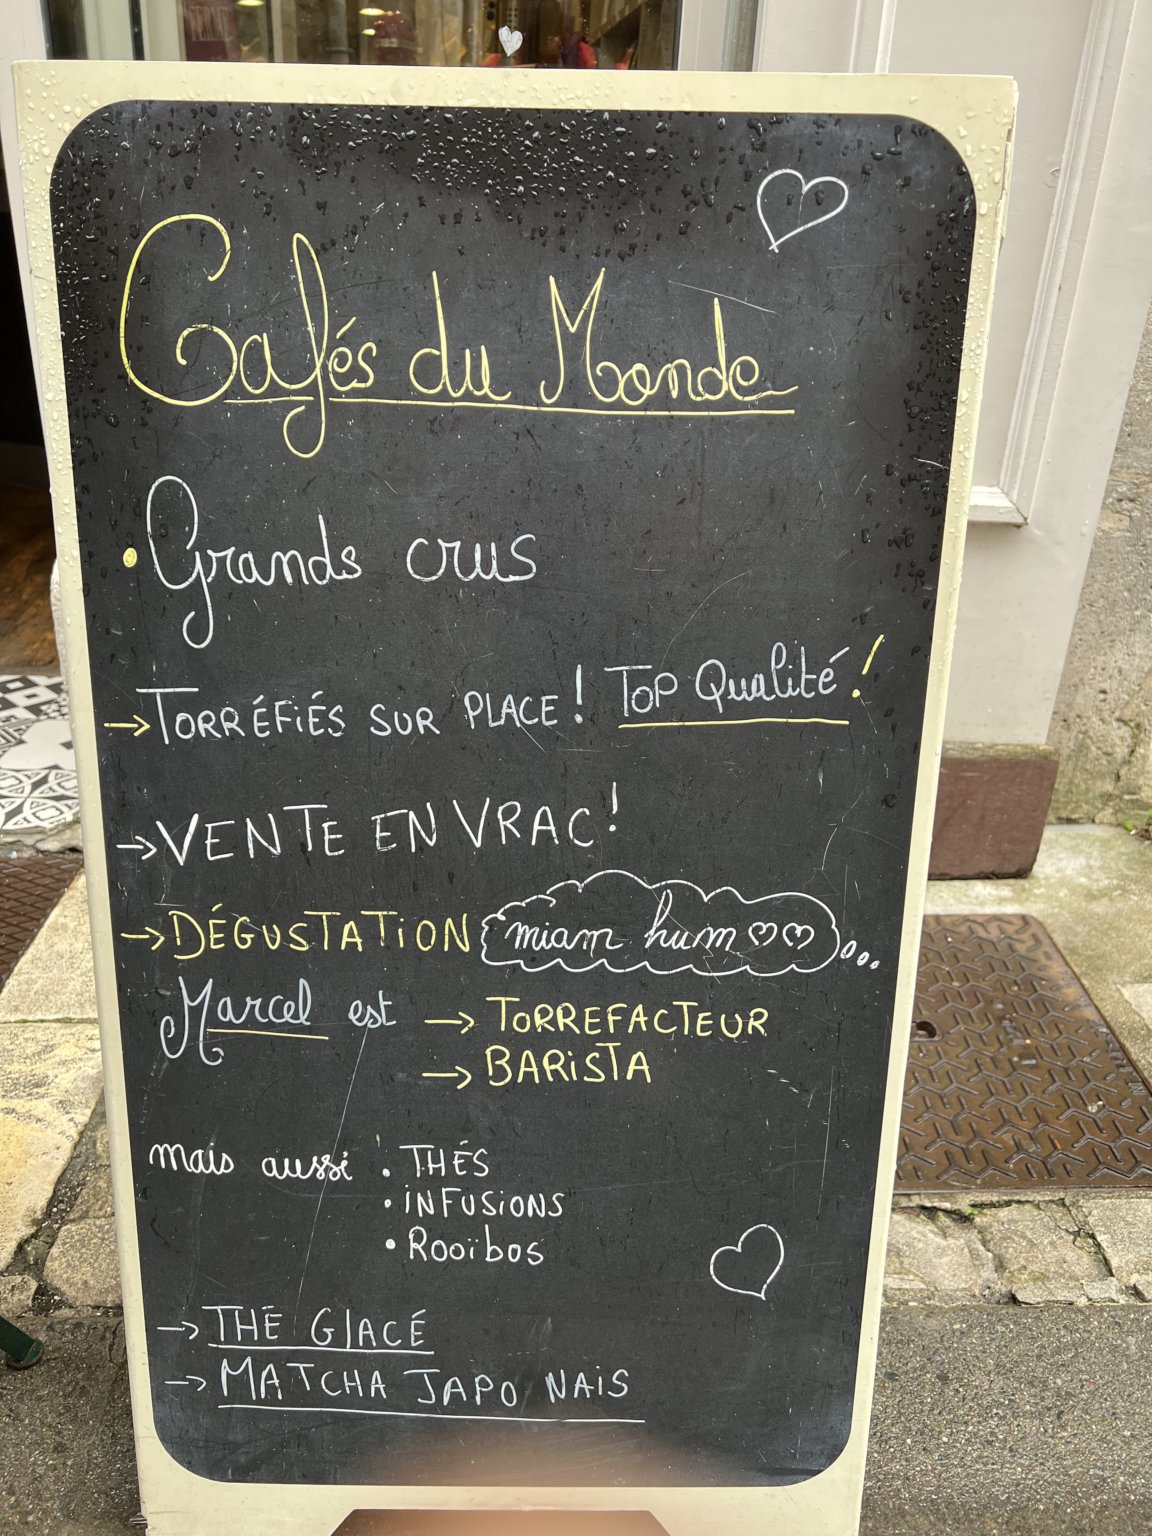 Cafés du Monde
• Grands crus
→ TORRÉFIÉS SUR PLACE ! TOP Qualité !
→ VENTE EN VRAC !
→ DÉGUSTATION miam hum ♡♡ ...
Marcel est → TORREFACTEUR
→ BARISTA
mais aussi • THÉS
• INFUSIONS
• Rooïbos
→ THÉ GLACÉ
→ MATCHA JAPO NAIS